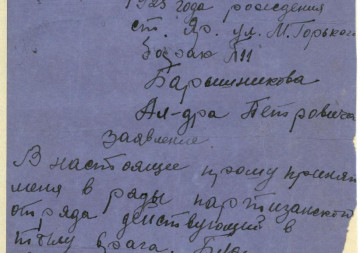 1925 года рождения
ст. Яр. ул. М. Горького
барак №11
Барышникова
Ал-дра Петровича
заявление
В настоящие прому принять
меня в ряды партизанского
отряда действующий в
тылу врага.